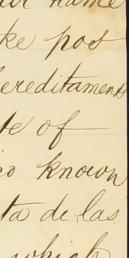 name
ke pos
ereditaments
te of
o known
ta de las
which